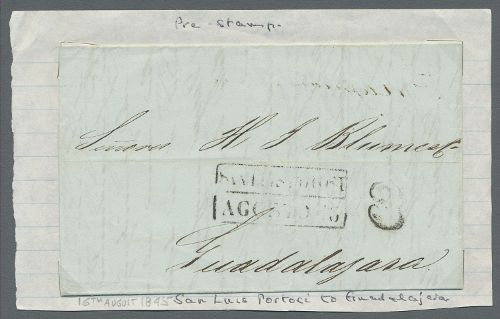 Pre-stamp.
Señores H J Blume &Co
SAN LUIS POTOSI
AGOSTO 16
3
Guadalajara.
16TH AUGUST 1845 San Luis Portosi to Guadalajara